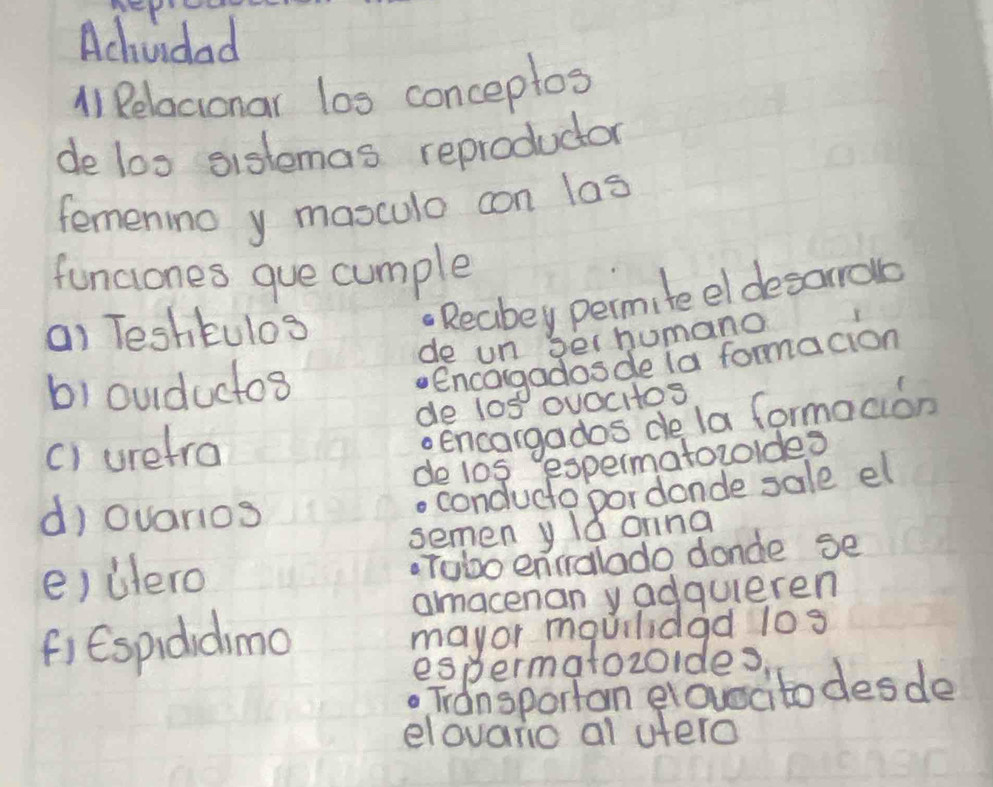 Actividad
1) Relacionar los conceptos
de los sistemas reproductor
femenino y masculo con las
funciones que cumple
a) Testikulos
b) oviductos
c) uretra
d) ovarios
e) útero
f) Espididimo
• Recibe y permite el desarrollo
de un ser humano
• Encargados de la formación
de los ovocitos
• encargados de la formación
de los espermatozoides
• conducto por donde sale el
semen y la orina
• Tubo enrralado donde se
amacenan y adquieren
mayor mquilidad los
espermatozoides.
• Transportan el ovocito desde
el ovario al utero